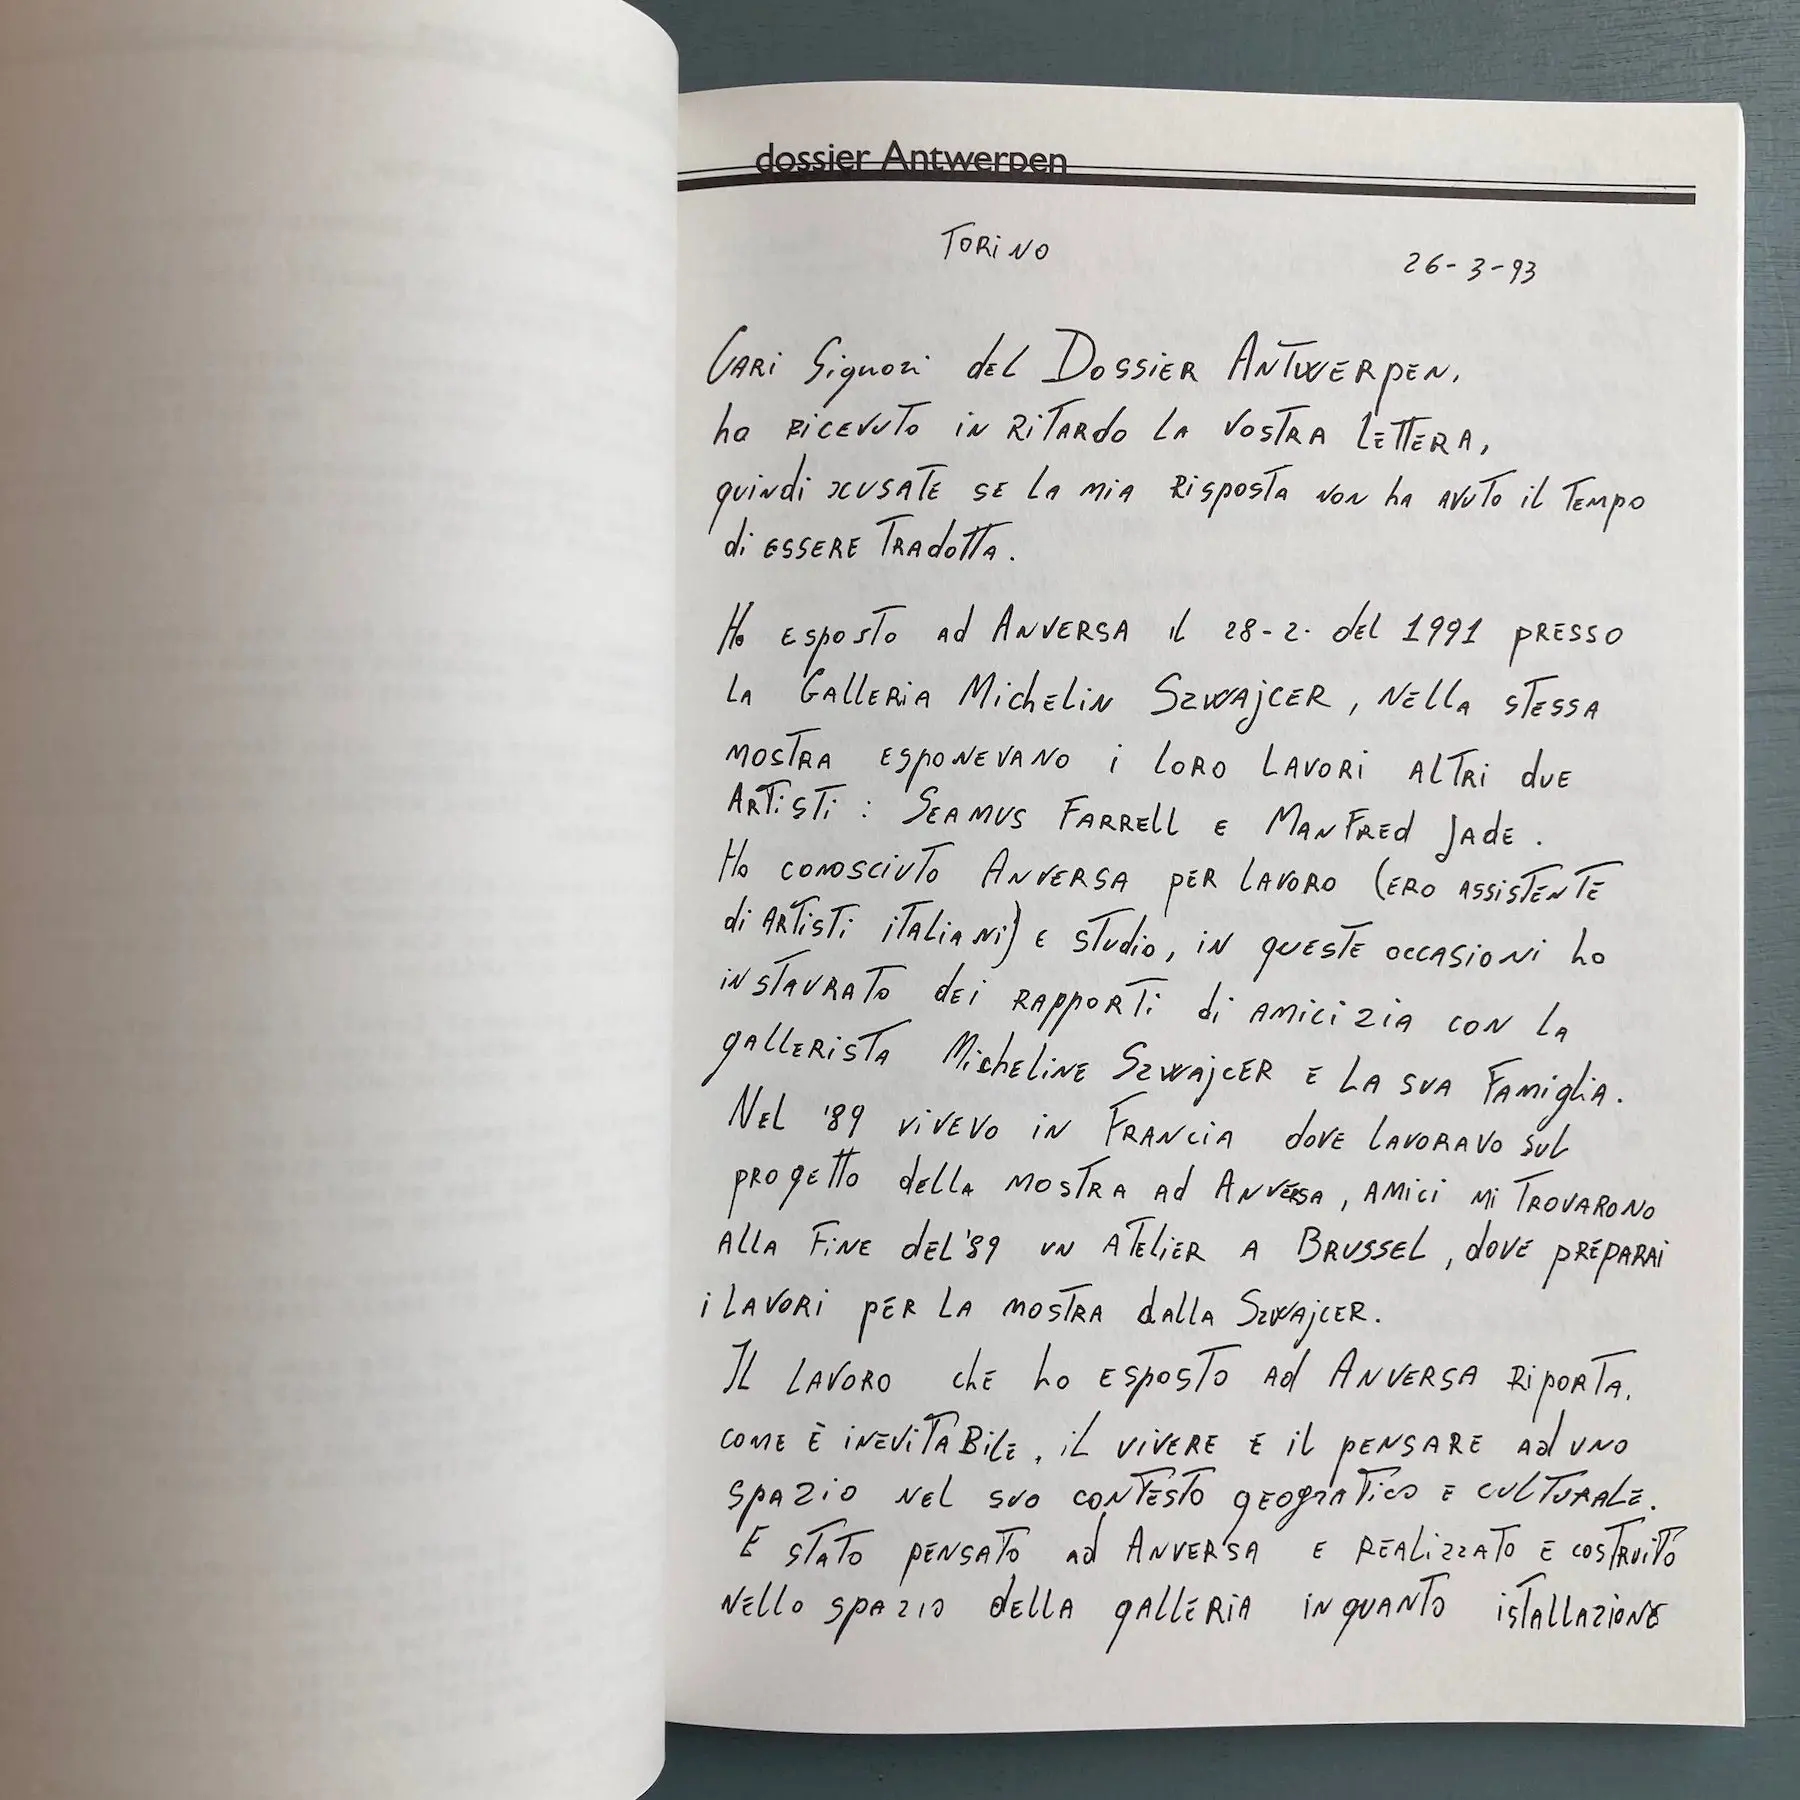 dossier Antwerpen
TORINO
26-3-93
CARI Signori del DOSSIER ANTWERPEN,
ho RICEVUTO IN RITARDO LA VOSTRA LETTERA,
quindi SCUSATE SE LA MIA RISPOSTA NON ha AVUTO il TEMPO
di ESSERE TRADOTTA.
Ho ESPOSTO Ad ANVERSA il 28-2. del 1991 PRESSO
LA GALLERIA MichELIN SZWAJCER, NELLA STESSA
MOSTRA ESPONEVANO i LORO LAVORI ALTRI DUE
ARTISTI : SEAMUS FARRELL E MANFRED JADE.
Ho CONOSCIUTO ANVERSA PER LAVORO (ERO ASSISTENTE
di ARTISTI ITALIANI) E STUDIO, IN QUESTE OCCASIONI ho
INSTAURATO dei RAPPORTI di AMICIZIA CON LA
gALLERISTA MichELINE SZWAJCER E LA SUA FAMIGLIA.
NEL '89 VIVEVO IN FRANCIA dOVE LAVORAVO SUL
PROGETTO dELLA MOSTRA Ad ANVERSA, AMICI MI TROVARONO
ALLA FINE dEL '89 UN ATELIER A BRUSSEL, dOVE PREPARAI
i LAVORI PER LA MOSTRA dALLA SZWAJCER.
IL LAVORO chE ho ESPOSTO Ad ANVERSA RIPORTA,
COME È INEVITABILE, iL VIVERE E il PENSARE Ad UNO
SPAZIO NEL SUO CONTESTO GEOGRATICO E CULTURALE.
E STATO PENSATO Ad ANVERSA E REALIZZATO E COSTRUITO
NELLO SPAZIO dELLA GALLERIA IN QUANTO ISTALLAZIONE